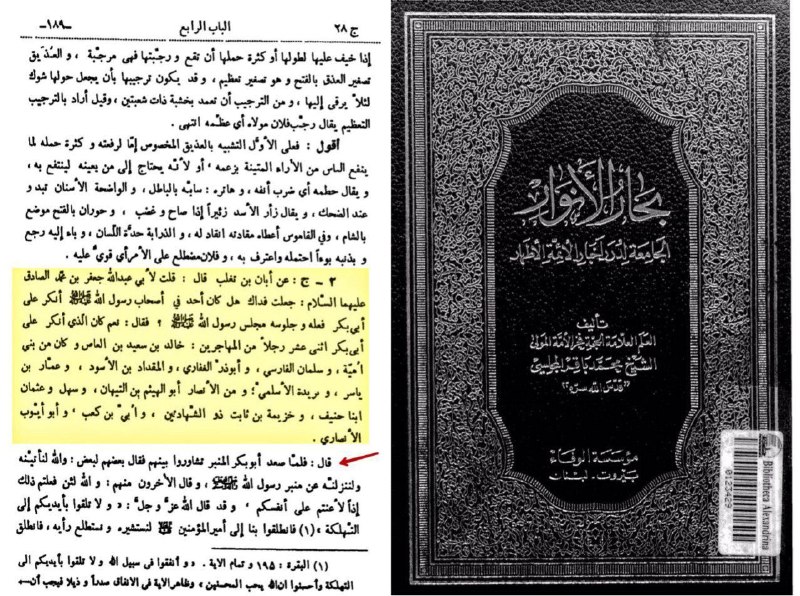 ج ٢٨
الباب الرابع
-١٨٩-
إذا خيف عليها لطولها أو كثرة حملها أن تقع ورجّبتها فهى مرجّبة ، و العُذَيق
تصغير العذق بالفتح و هو تصغير تعظيم ، و قد يكون ترجيبها بأن يجعل حولها شوك
لئلاّ يرقى إليها ، و من الترجيب أن تعمد بخشبة ذات شعبتين ، وقيل أراد بالترجيب
التعظيم يقال رجّب فلان مولاه أي عظّمه انتهى .
أقول : فعلى الأوّل التشبيه بالعذيق المخصوص إمّا لرفعته و كثرة حمله لما
ينفع الناس من الأراء المتينة بزعمه ، أو لأنّه يحتاج إلى من يعينه لينتفع به ،
و يقال حطمه أي ضرب أنفه ، و هاتره : سابّه بالباطل ، و الواضحة الأسنان تبدو
عند الضحك ، و يقال زأر الأسد زئيراً إذا صاح و غضب ، و حوران بالفتح موضع
بالشام ، وفي القاموس أعطاه مقادته انقاد له ، و الذرابة حدّة اللّسان ، و باء إليه رجع
و بذنبه بوءاً احتمله واعترف به ، و فلان مضطلع على الأمر أي قويّ عليه .
٢ ـ ج : عن أبان بن تغلب قال : قلت لأبي عبدالله جعفر بن محمّد الصادق
عليهما السّلام : جعلت فداك هل كان أحد في أصحاب رسول الله ﷺ أنكر على
أبي بكر فعله و جلوسه مجلس رسول الله ﷺ ؟ فقال : نعم كان الّذي أنكر على
أبي بكر اثنى عشر رجلاً من المهاجرين : خالد بن سعيد بن العاص و كان من بني
اُميّة ، و سلمان الفارسي ، و أبوذرّ الغفاري ، و المقداد بن الأسود ، و عمّار بن
ياسر ، و بريدة الأسلمي ؛ و من الأنصار أبو الهيثم بن التيهان ، و سهل و عثمان
ابنا حنيف ، و خزيمة بن ثابت ذو الشهادتين ، و اُبيّ بن كعب ، و أبو أيّوب
الأنصاري .
قال : فلمّا صعد أبوبكر المنبر تشاوروا بينهم فقال بعضهم لبعض : والله لنأتينّه
ولننزلنّه عن منبر رسول الله ﷺ ، و قال الأخرون منهم : و الله لئن فعلتم ذلك
إذاً لأعنتم على أنفسكم ، و قد قال الله عزّ و جلّ : « و لا تلقوا بأيديكم إلى
التهلكة » (١) فانطلقوا بنا إلى أميرالمؤمنين لنستشيره و نستطلع رأيه ، فانطلق
(١) البقرة : ١٩٥ و تمام الاية . « و أنفقوا في سبيل الله و لا تلقوا بأيديكم الى
التهلكة وأحسنوا ان الله يحب المحسنين ، وظاهر الاية في الانفاق صدراً و ذيلا فيجب أن
بحار الأنوار
الجامعة لدرر أخبار الأئمة الأطهار
تأليف
العلم العلامة الحجة فخر الأمة المولى
الشيخ محمد باقر المجلسي
"قدس الله سره"
مؤسسة الوفاء
بيروت - لبنان
Bibliotheca Alexandrina